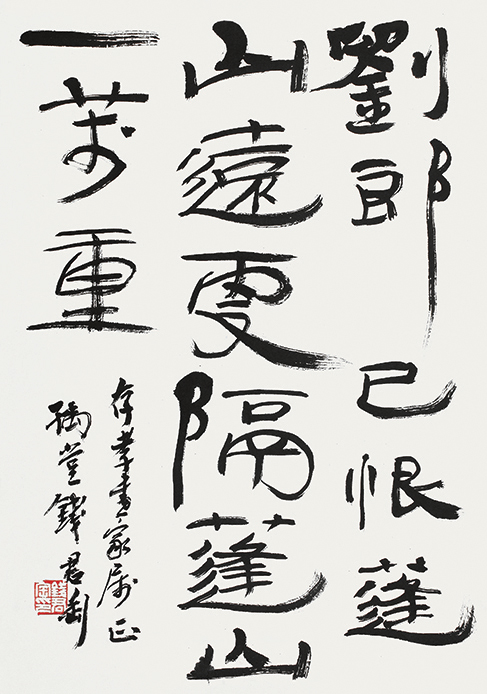 劉郎已恨蓬
山遠更隔蓬山
一萬重
存孝書家属正
豫堂錢君匋